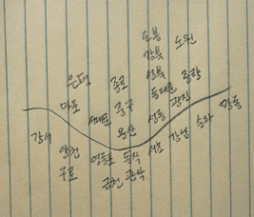 도봉
강북 노원
은평 종로 성북 중랑
마포 서대문 중구 동대문 광진
강서 용산 성동 강동
양천 영등포 동작 서초 강남 송파
구로 금천 관악